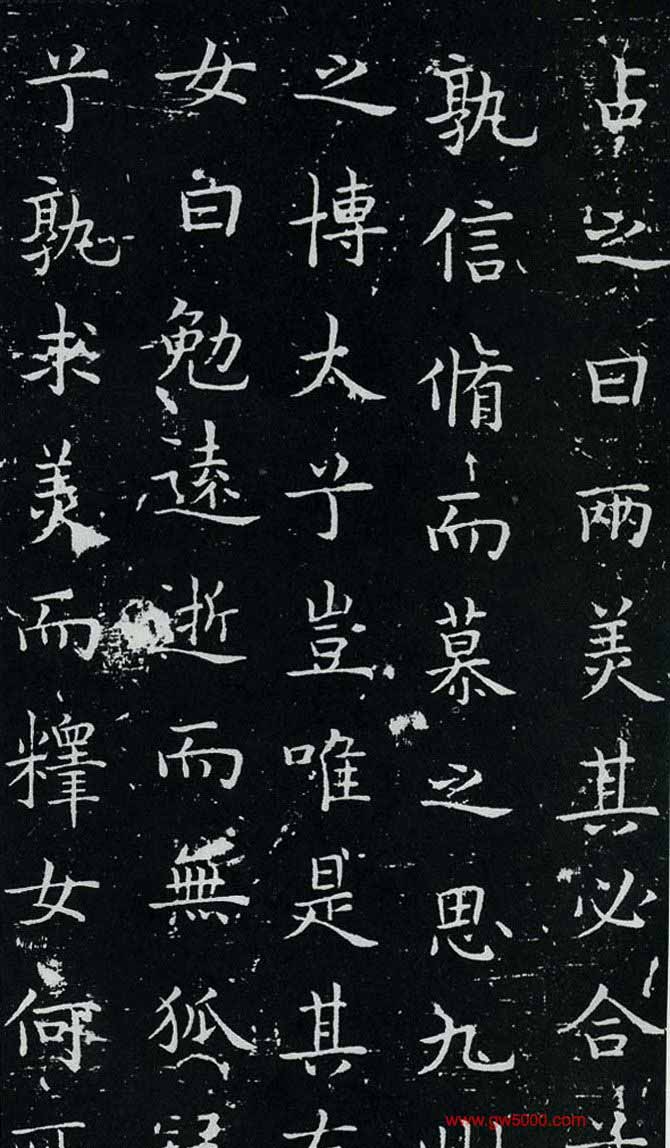 占之曰兩美其必合
孰信脩而慕之思九
之博太兮豈唯是其
女曰勉遠逝而無狐
兮孰求美而釋女何
www.gw5000.com